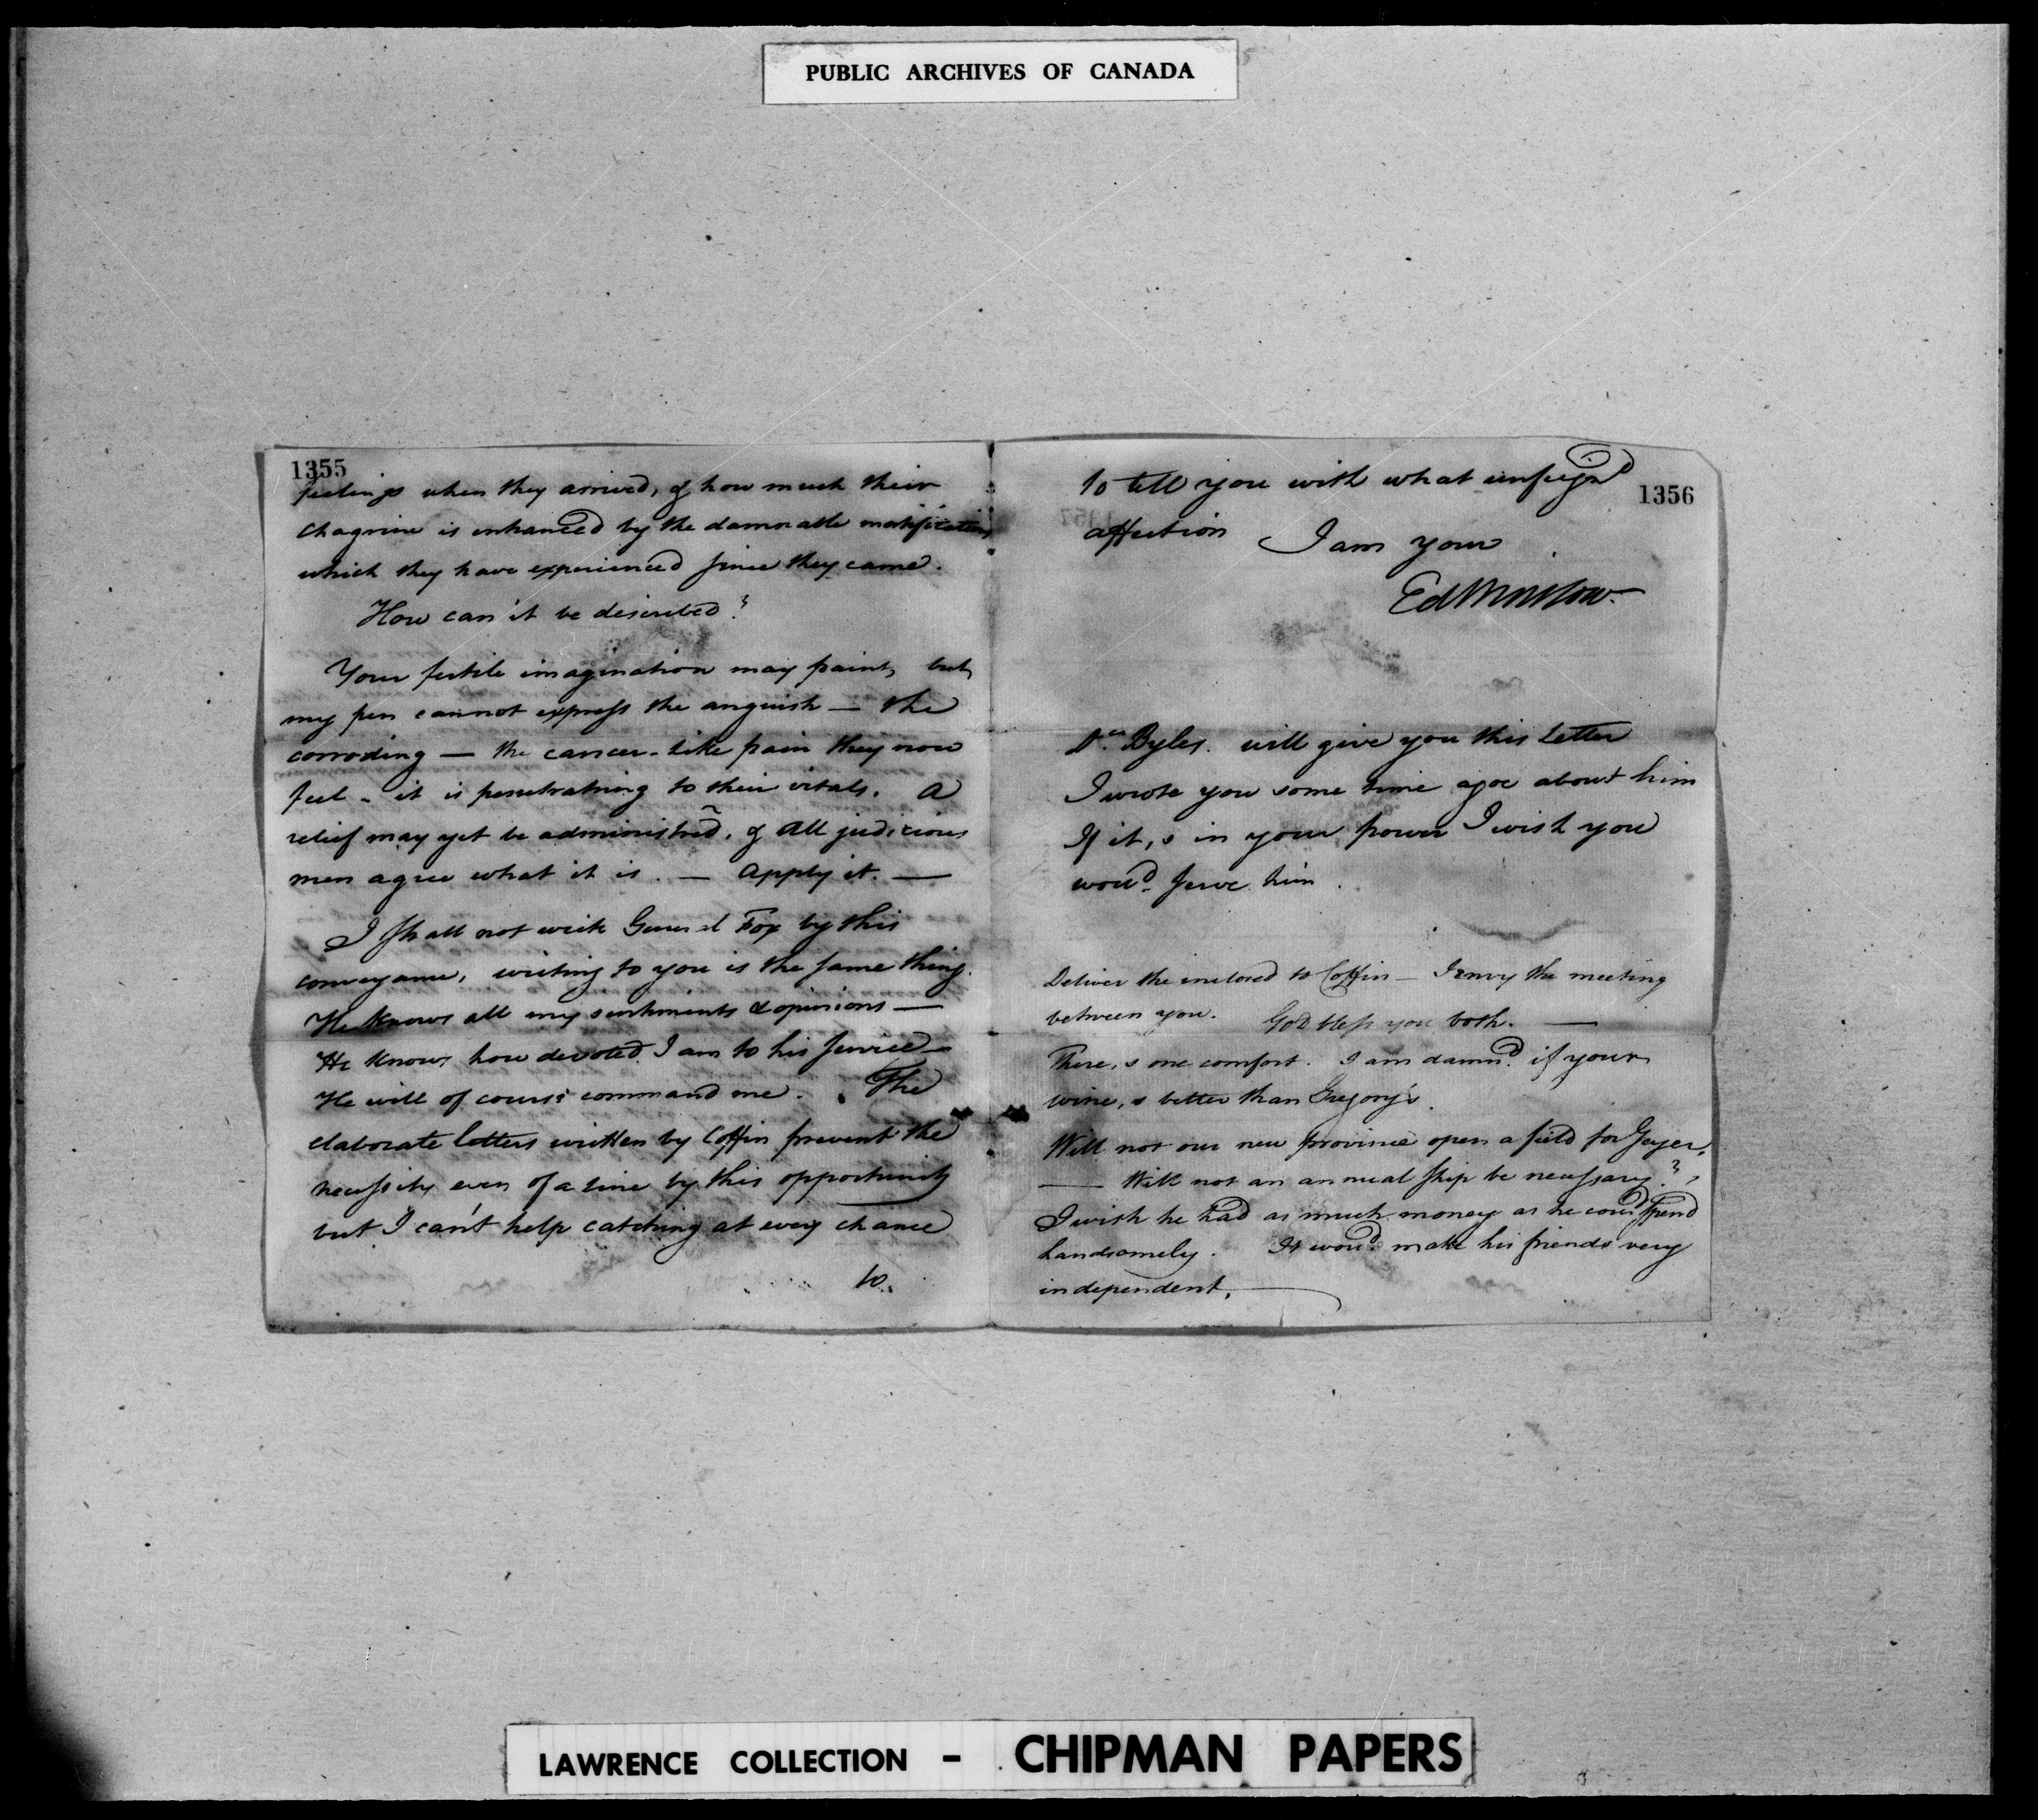 PUBLIC ARCHIVES OF CANADA
1355
feelings when they arrived, & how much their
chagrine is enhanced by the damnable mortifications
which they have experienced since they came.
How can it be described?
Your fertile imagination may paint, but
my pen cannot express the anguish — the
corroding — the cancer-like pain they now
feel - it is penetrating to their vitals. A
relief may yet be administred, & all judicious
men agree what it is. — Apply it. —
I shall not write General Fox by this
conveyance, writing to you is the same thing.
He knows all my sentiments & opinions —
He knows how devoted I am to his service —
He will of course command me. The
elaborate letters written by Coffin prevent the
necessity even of a line by this opportunity
but I can't help catching at every chance
to
1356
to tell you with what unfeign'd
affection I am your
Ed Winslow.
Dr. Byles will give you this Letter
I wrote you some time agoe about him
If it,s in your power I wish you
wou'd serve him.
Deliver the inclosed to Coffin — I envy the meeting
between you. God bless you both. —
There,s one comfort. I am damn'd if your
wine,s better than Gregory's.
Will not our new province open a field for Geyer.
— Will not an annual ship be necessary?
I wish he had as much money as he cou'd spend
handsomely. It wou'd make his friends very
independent.
LAWRENCE COLLECTION - CHIPMAN PAPERS